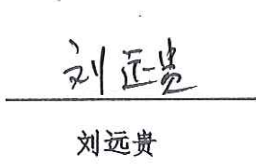 刘远贵
刘远贵